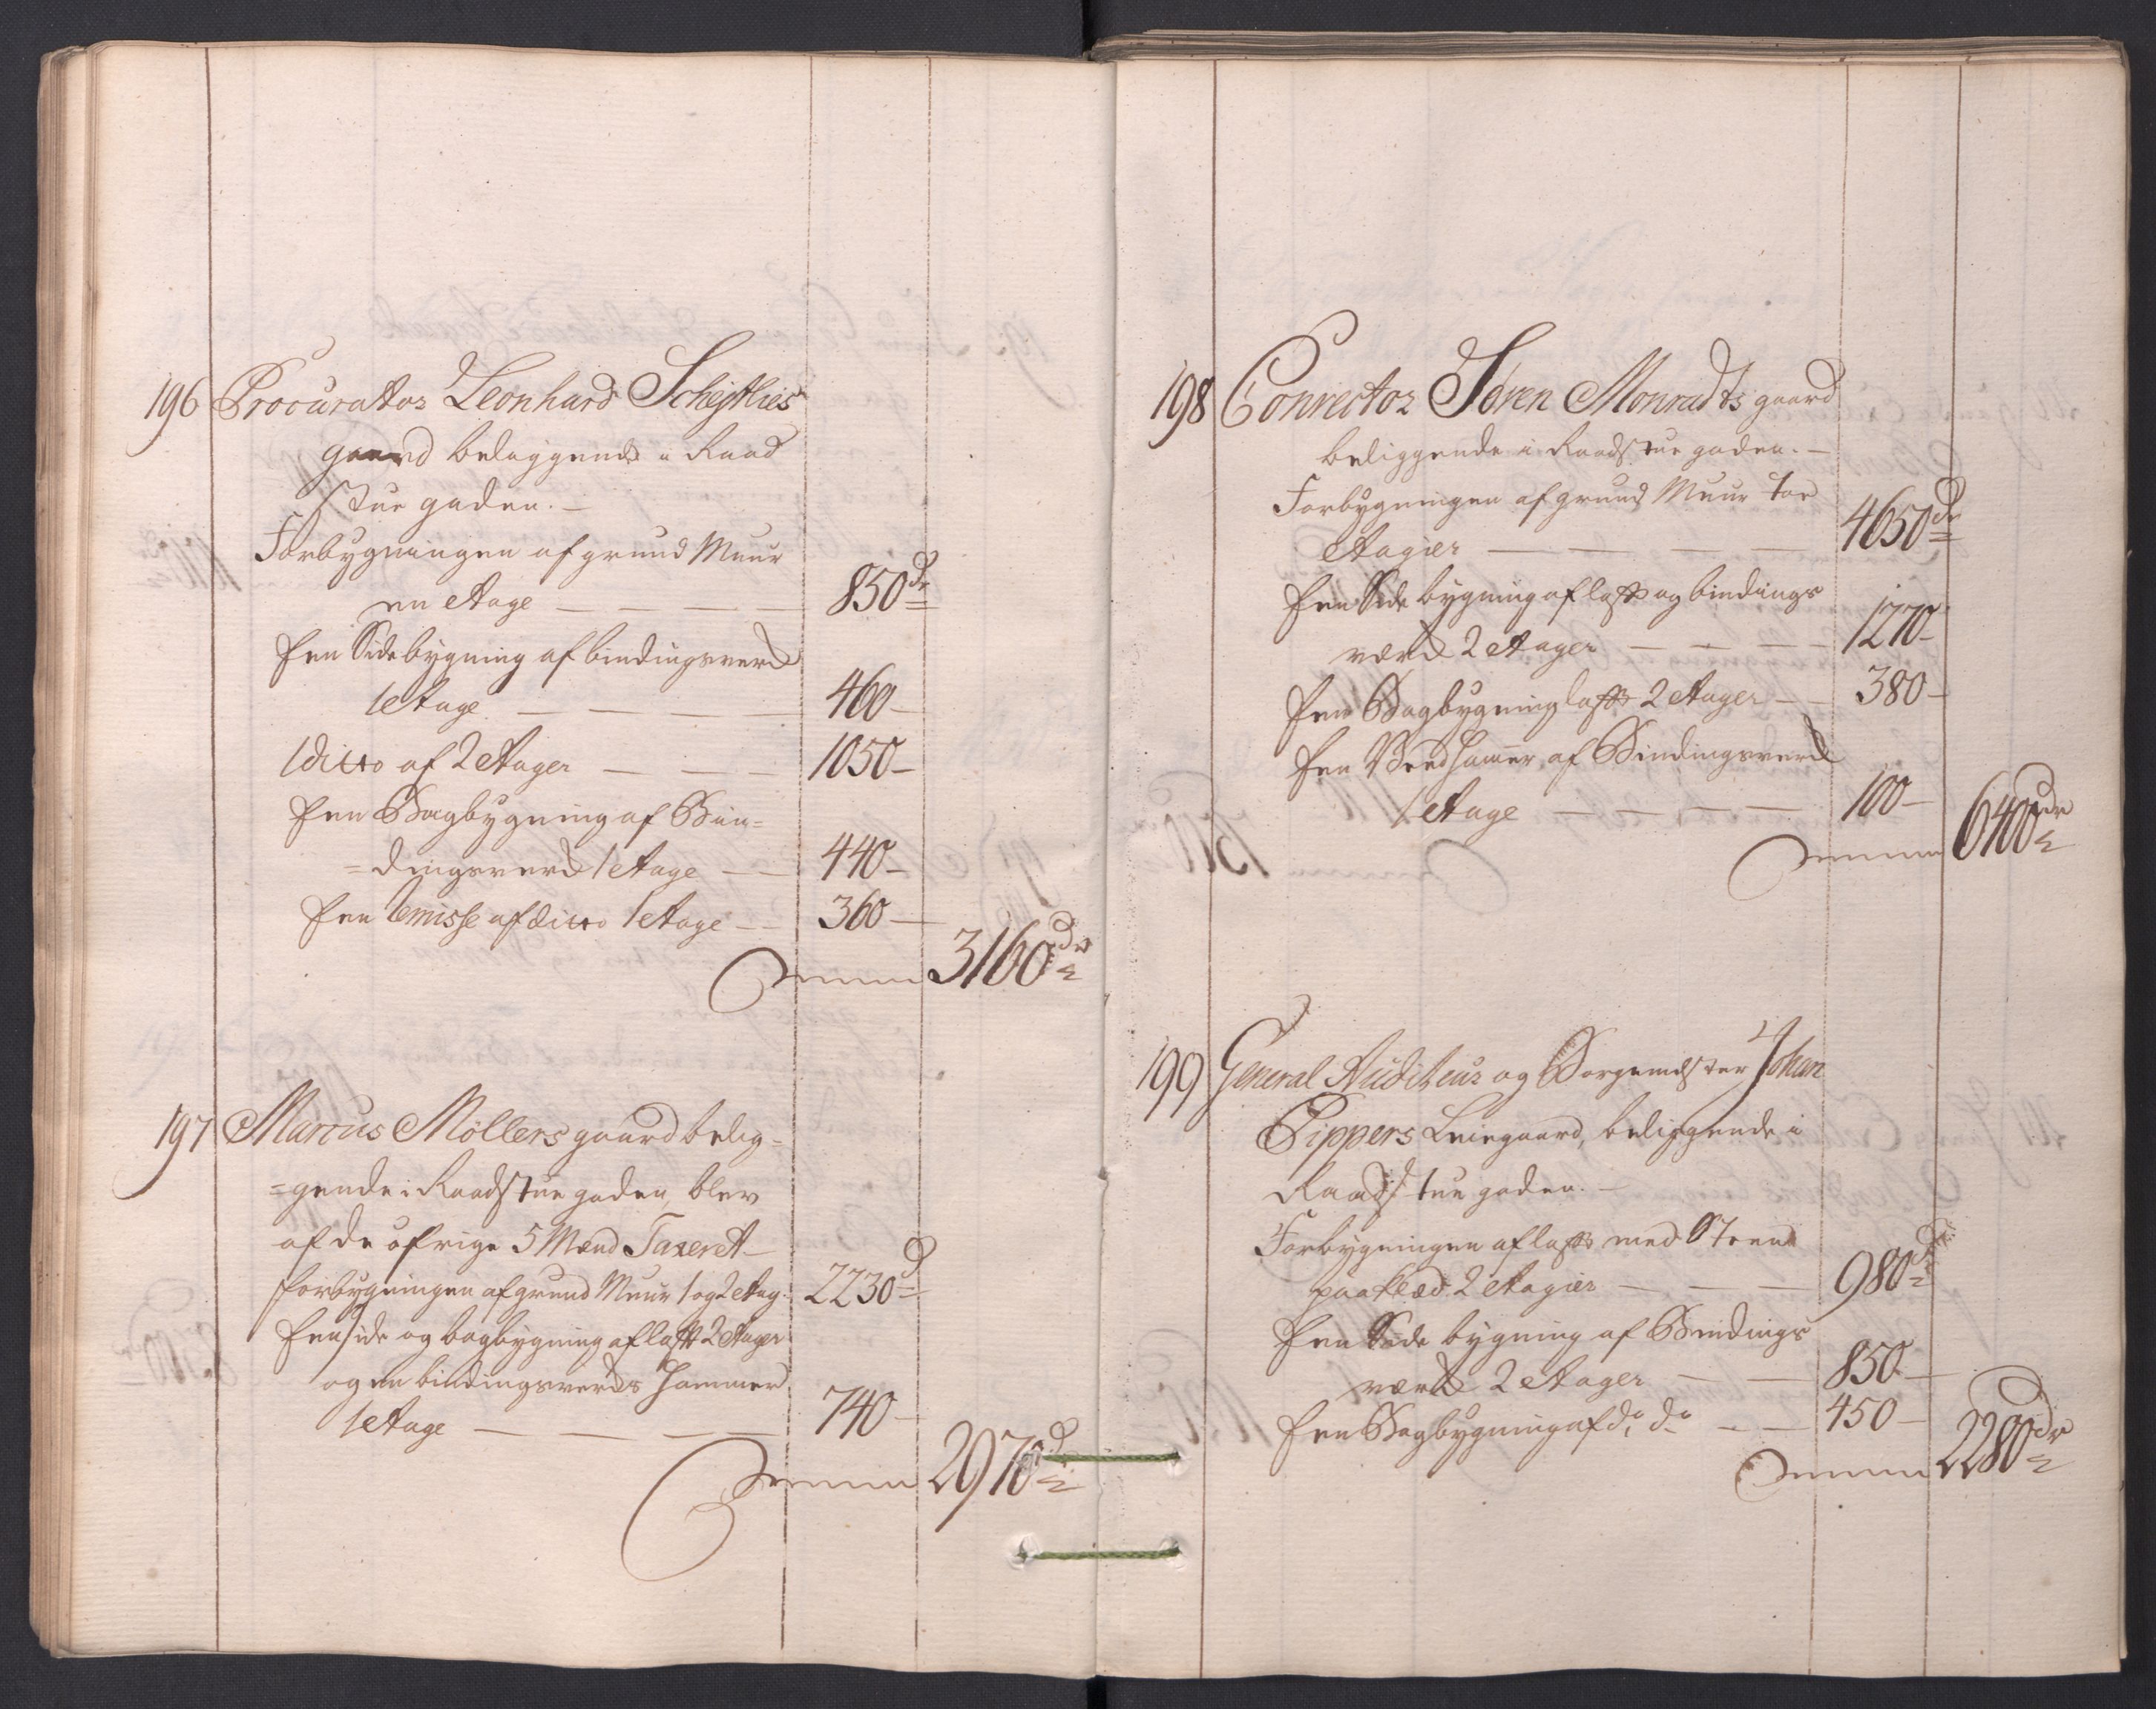 196 Procurator Leonhard Schejtlies
gaard beleggende i Raad
stue gaden. –
Forbygningen af grund Muur
en etage – – – – 850 dr
Een Sidebygning af bindingsverk
1 etage – – – – 460 –
1 ditto af 2 etager – – – 1050 –
Een Bagbygning af Bin=
=dingsverk 1 etage – – 440 –
Een Remisse af ditto 1 etage – – 360 –
Summa 3160 dr
197 Marcus Möllers gaard belig=
=gende i Raadstue gaden, blev
af de öfrige 5 Mænd Taxeret –
forbygningen af grund Muur 1 og 2 etag. 2230 d
Een side og bagbygning af laft 2 etager
og en bindingsverks
1 etage – – – – 740 –
Summa 2970 d
198 Conrector Sören Monradts gaard
beliggende i Raadstue gaden. –
Forbygningen af grund Muur toe
etagier – – – – 4650 dr
Een Side bygning af laft og bindings
værk 2 etager – – – – 1270 –
Een Bagbygning laft 2 etager – – 380 –
Een af Bindingsverk
1 etage – – – – 100 –
Summa 6400 dr
199 General Auditeur og Borgemester Johan
Pippers Leiegaard, beliggende i
Raadstue gaden. –
Forbygningen af laft med Steen
paaklæd 2 etagier – – – 980 d
Een Side bygning af Bindings
værk 2 etager – – 850 –
Een Bagbygning af do do – – 450 –
Summa 2280 dr